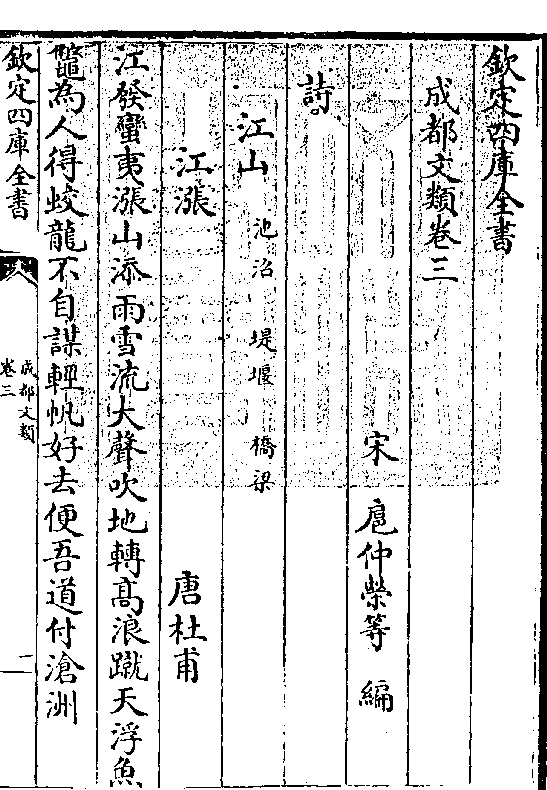 欽定四庫全書
成都文類卷三
宋 扈仲榮等 編
詩
江山 池沼 堤堰 橋梁
江漲 唐杜甫
江發蠻夷漲山添雨雪流大聲吹地轉髙浪蹴天浮魚
鼈為人得蛟龍不自謀輕帆好去便吾道付滄洲
欽定四庫全書
成都文類
卷三
一